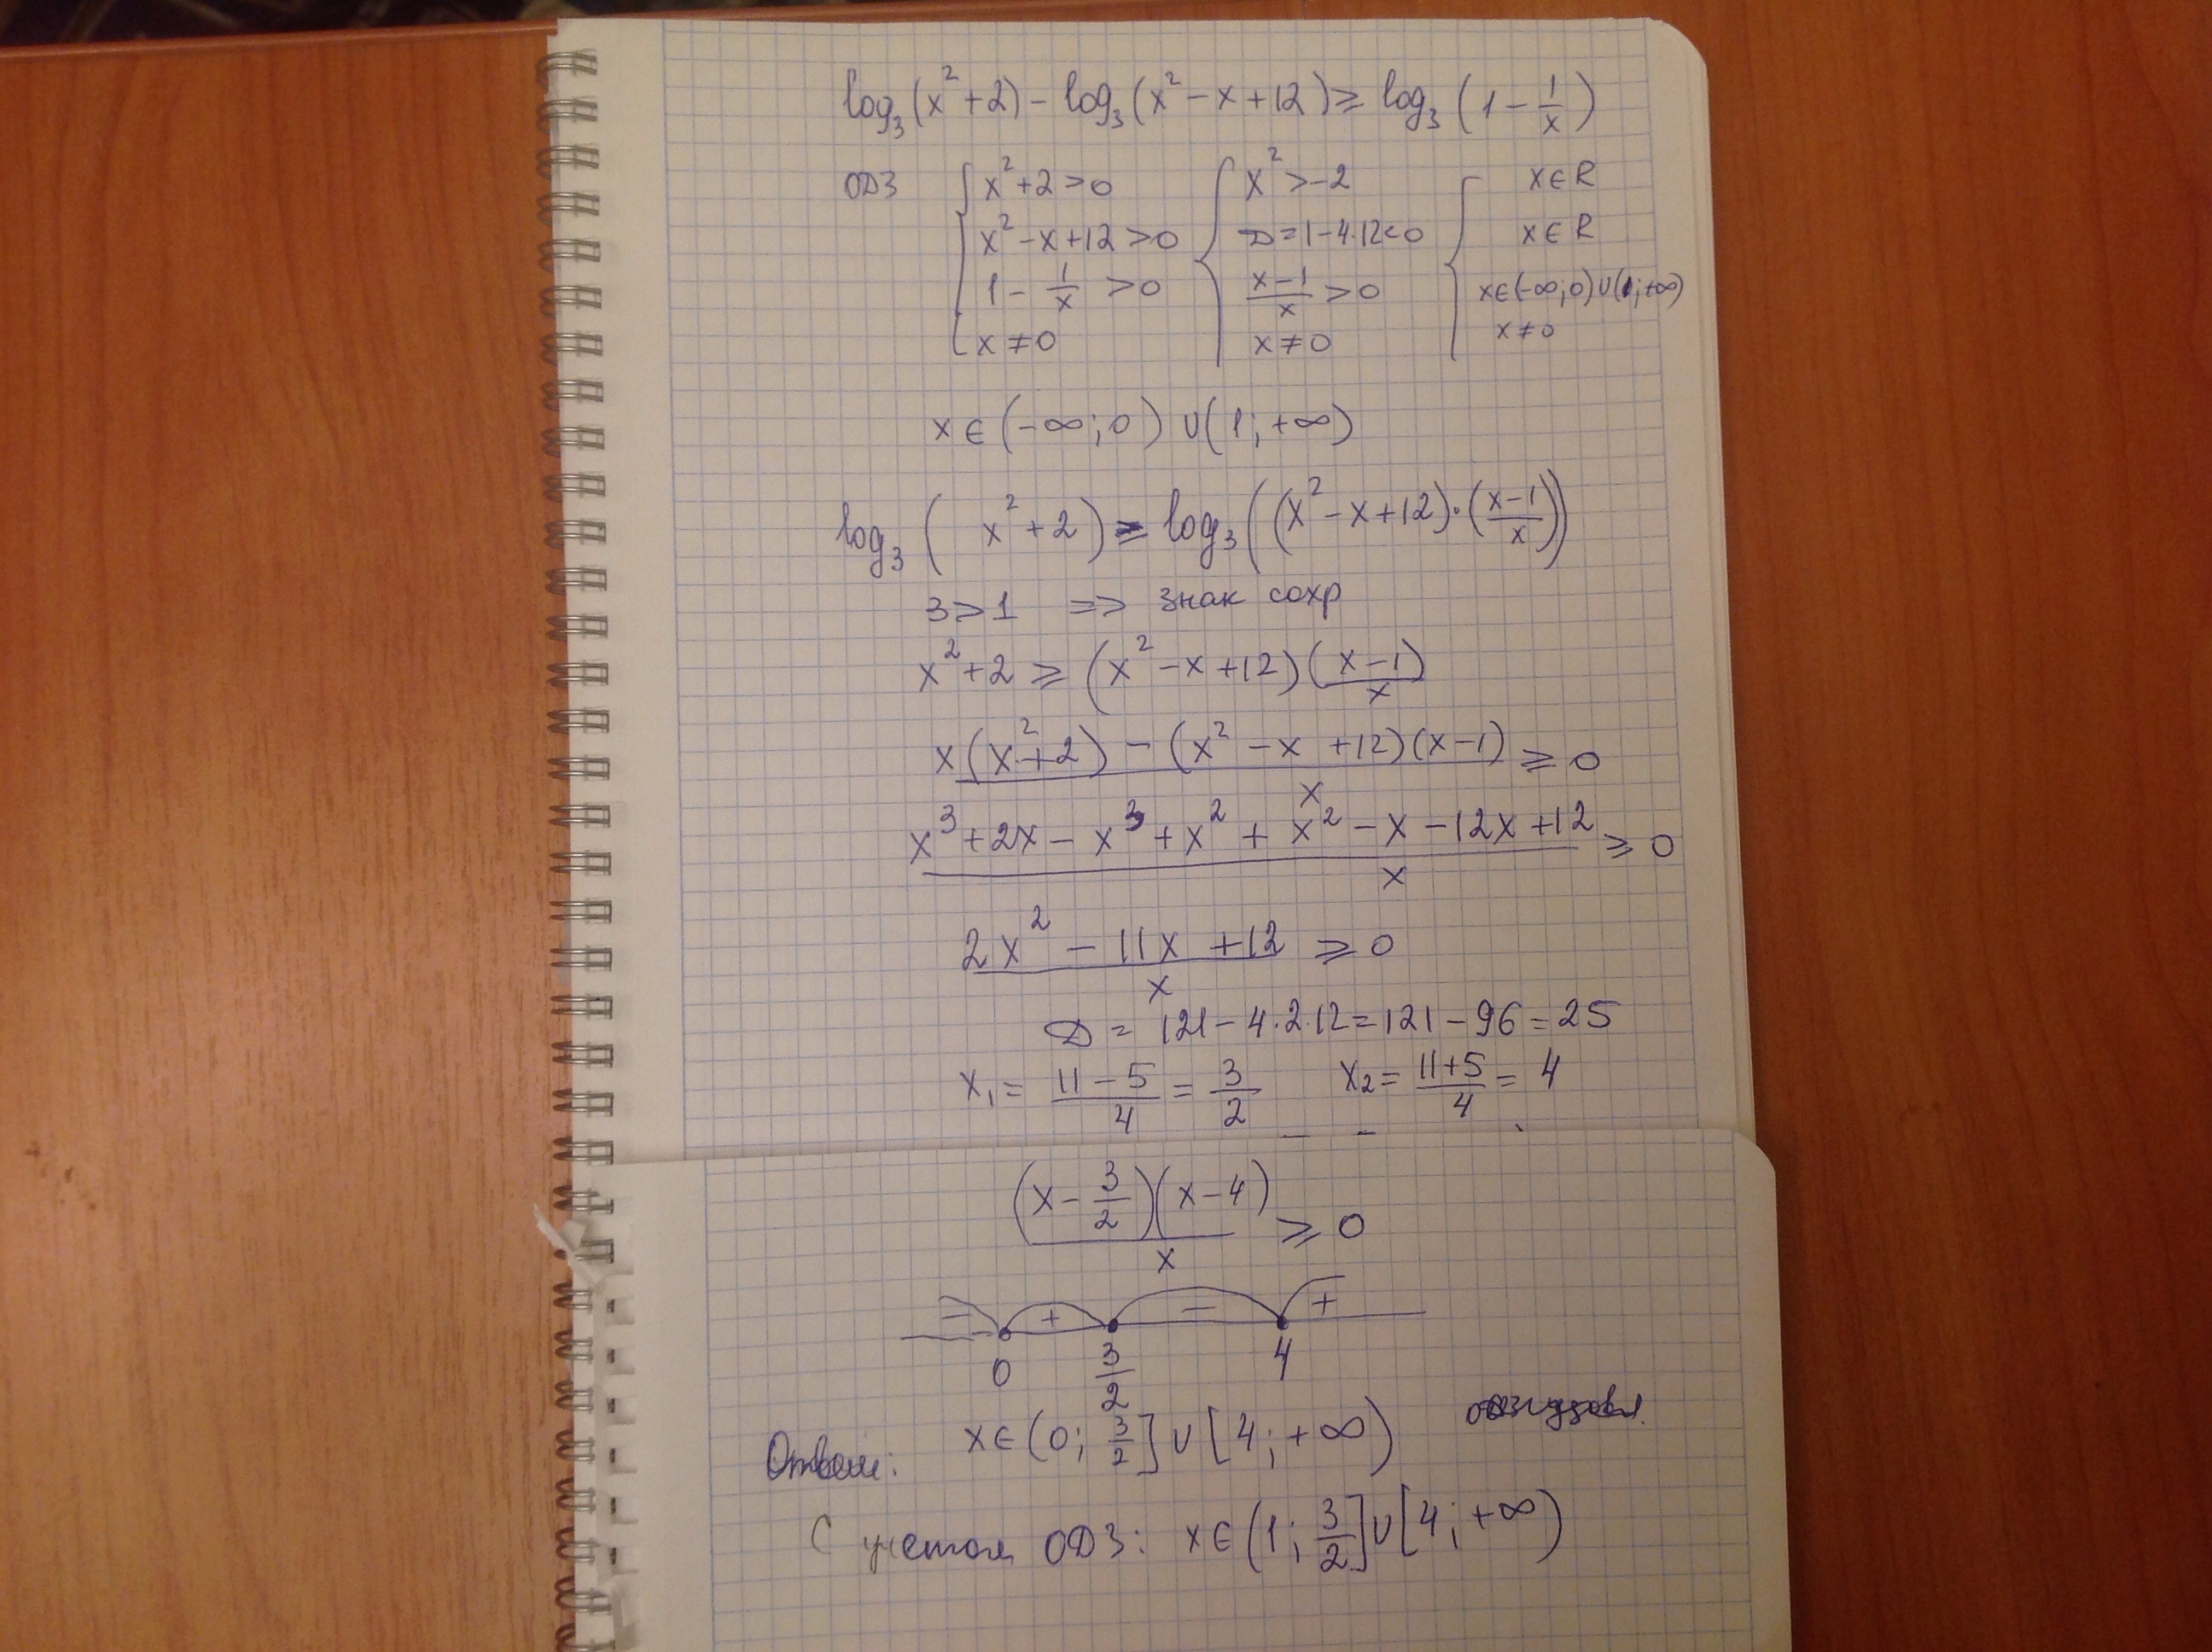 log₃(x²+2) - log₃(x²-x+12) ≥ log₃(1 - 1/x)
ОДЗ { x²+2>0 { x²>-2 { x∈R
x²-x+12>0 D=1-4·12<0 x∈R
1 - 1/x >0 (x-1)/x >0 x∈(-∞;0)∪(1;+∞)
x≠0 x≠0 x≠0
x∈(-∞;0)∪(1;+∞)
log₃(x²+2) ≥ log₃((x²-x+12)·((x-1)/x))
3>1 => знак сохр
x²+2 ≥ (x²-x+12)((x-1)/x)
(x(x²+2) - (x²-x+12)(x-1))/x ≥ 0
(x³+2x-x³+x²+x²-x-12x+12)/x ≥ 0
(2x²-11x+12)/x ≥ 0
D = 121-4·2·12=121-96=25
x₁= (11-5)/4 = 3/2 x₂= (11+5)/4 = 4
((x-3/2)(x-4))/x ≥ 0
- + - +
0 3/2 4
x∈(0; 3/2]∪[4;+∞)
Ответ:
С учетом ОДЗ: x∈(1; 3/2]∪[4;+∞)